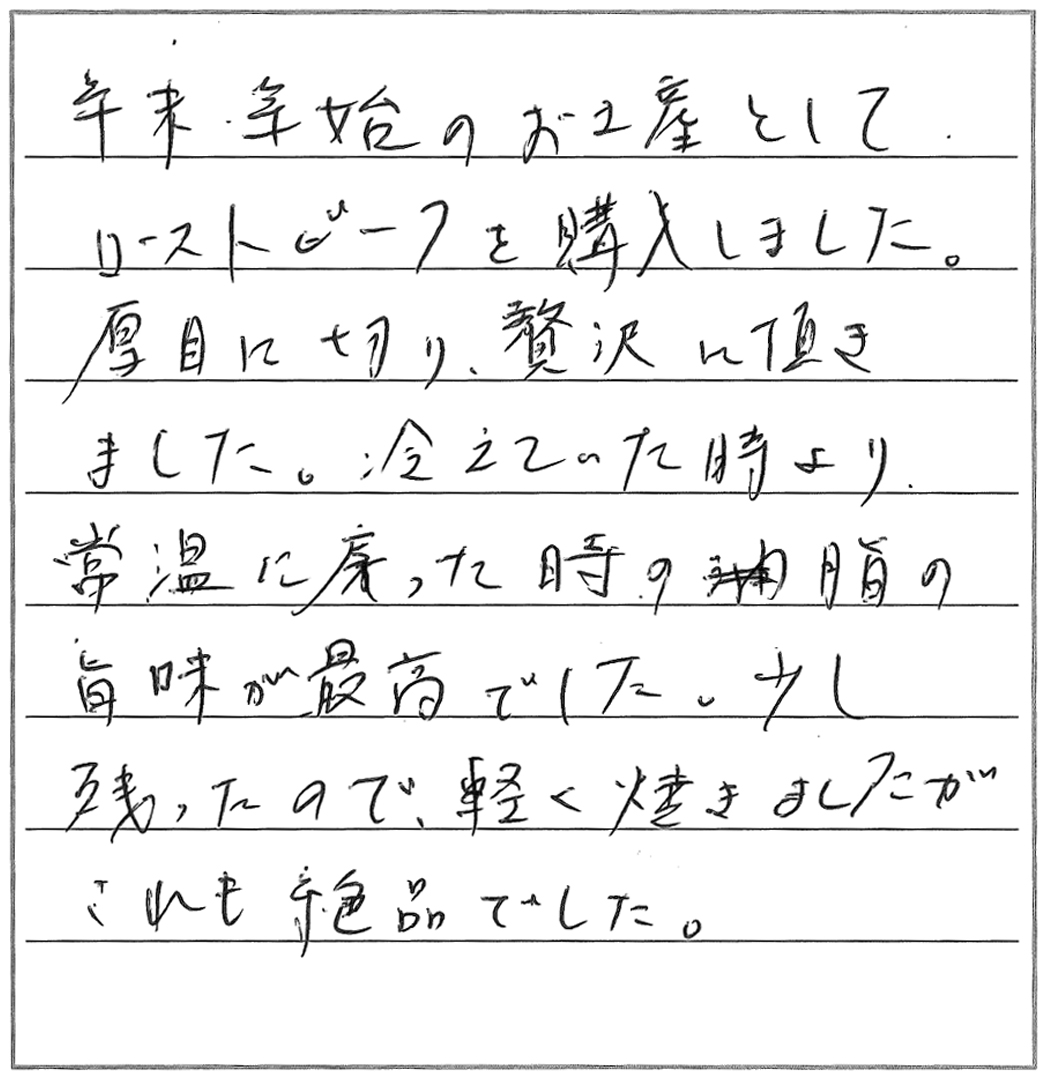 年末年始のお土産として
ローストビーフを購入しました。
厚目に切り、贅沢に頂き
ました。冷えていた時より
常温に戻った時の油脂の
旨味が最高でした。少し
残ったので、軽く焼きましたが
これも絶品でした。